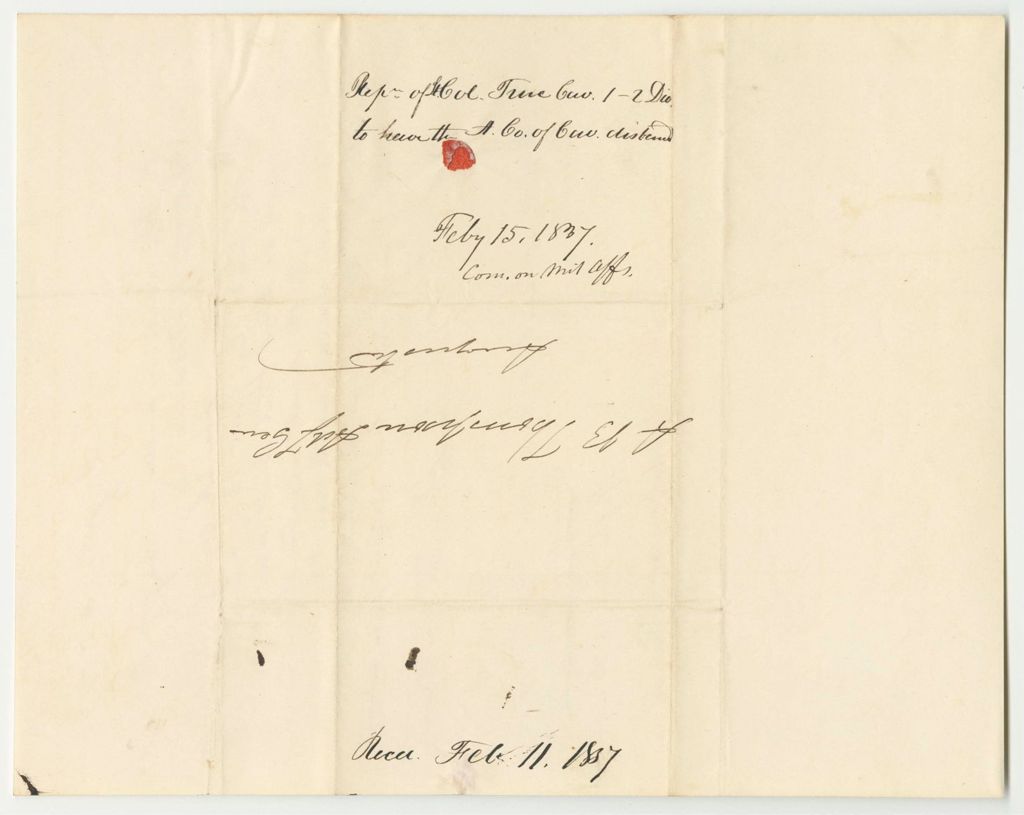 Repn of Col. True Cav. 1-2 Div.
to have the A. Co. of Cav. disband
Feby 15, 1837.
Com. on Mil Affs.
A B Thompson Adj Gen
Augusta
Recd. Feb. 11. 1837